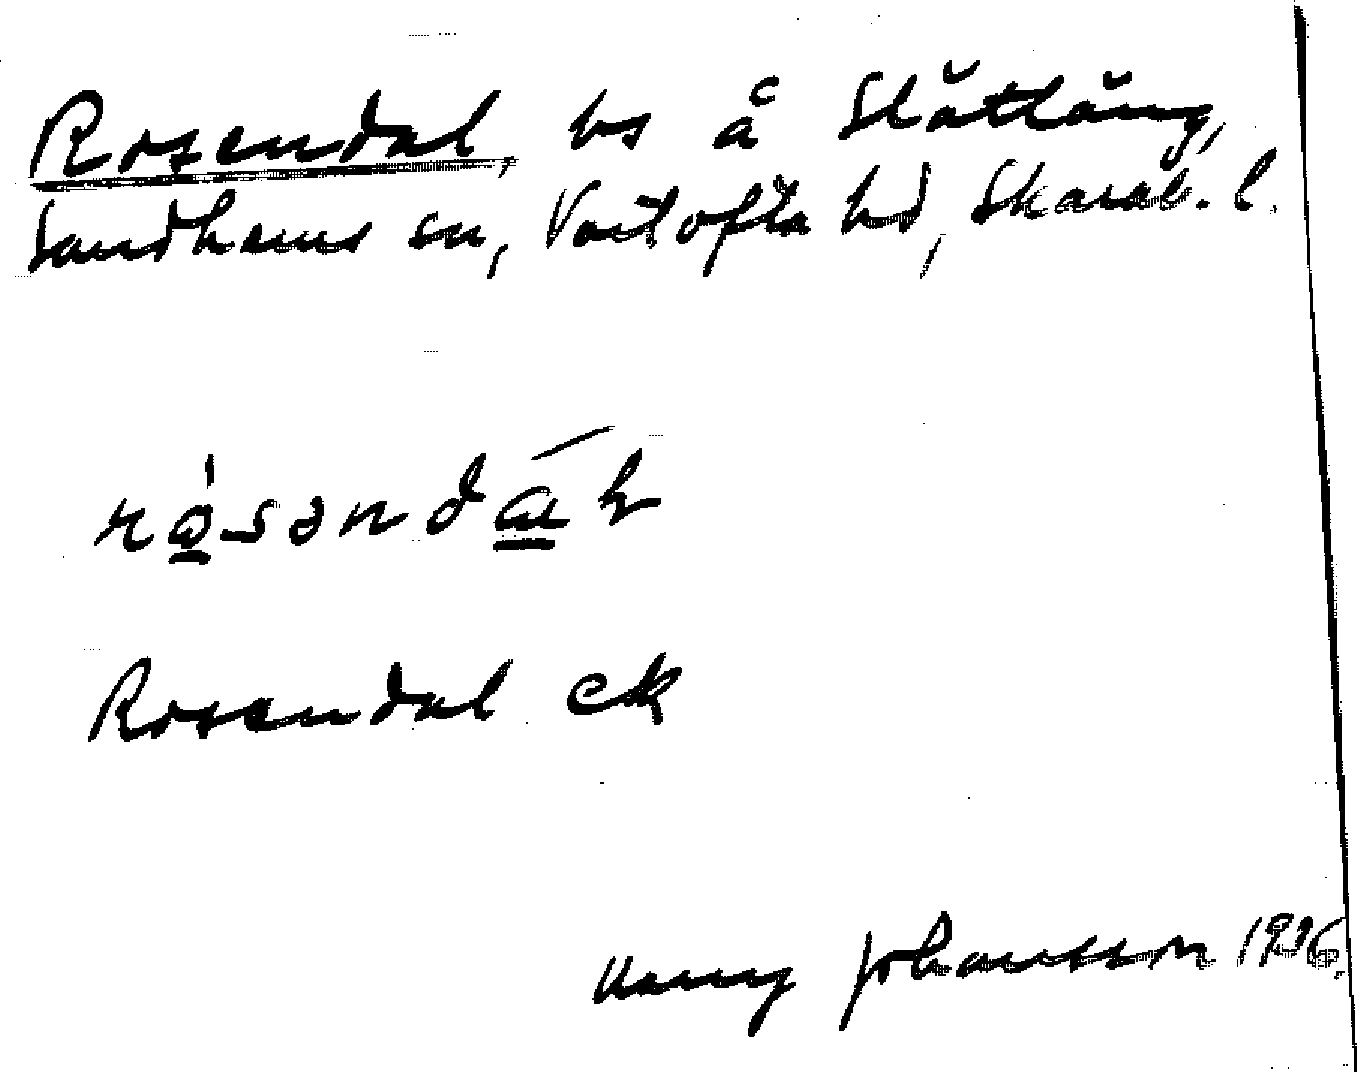 Rosendal, bs å Slätläng,
Sandhems sn, Vartofta hd, Skarab. l.
Rosendal ek
Harry Johansson 1926.